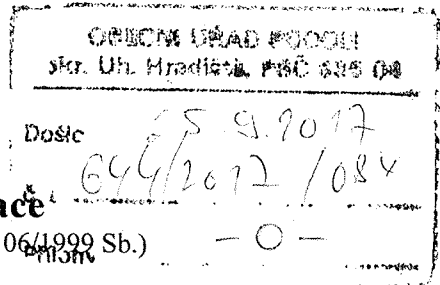 OBECNÍ ÚŘAD PODOLÍ
okr. Uh. Hradiště, PSČ 686 04
Došlo
25.9.2017
644/2017/084
ace
06/1999 Sb.)
Příloh
– O –